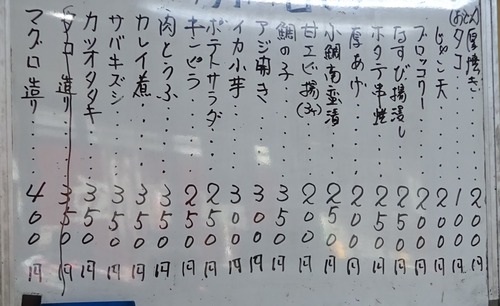 厚焼き......200円
(おどん)タコ......100円
じゃこ天......200円
ブロッコリー......200円
なすび揚浸し......250円
ホタテ串焼......250円
厚あげ......200円
小鯛南蛮漬......250円
甘エビ揚(3ケ)......200円
鯛の子......350円
アジ開き......300円
イカ小芋......300円
ポテトサラダ......250円
キンピラ......250円
肉とうふ......350円
カレイ煮......350円
サバキズシ......350円
カツオタタキ......350円
タコ造り......350円
マグロ造り......400円